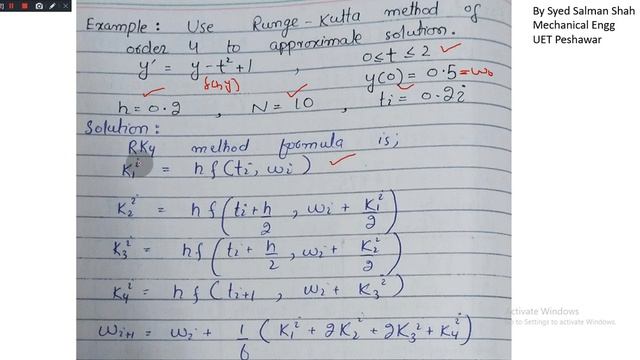 Example: Use Runge-Kutta method of
order 4 to approximate solution.
y' = y - t² + 1 , 0 ≤ t ≤ 2 ✓
f(t,y) y(0) = 0.5 = w₀
h = 0.2 , N = 10 , tᵢ = 0.2i
Solution:
RK4 method formula is;
K₁ⁱ = h f(tᵢ, wᵢ) ✓
K₂ⁱ = h f(tᵢ + h/2 , wᵢ + K₁ⁱ/2)
K₃ⁱ = h f(tᵢ + h/2 , wᵢ + K₂ⁱ/2)
K₄ⁱ = h f(tᵢ₊₁ , wᵢ + K₃ⁱ)
wᵢ₊₁ = wᵢ + 1/6 (K₁ⁱ + 2K₂ⁱ + 2K₃ⁱ + K₄ⁱ)
By Syed Salman Shah
Mechanical Engg
UET Peshawar
Activate Windows
Go to Settings to activate Windows.